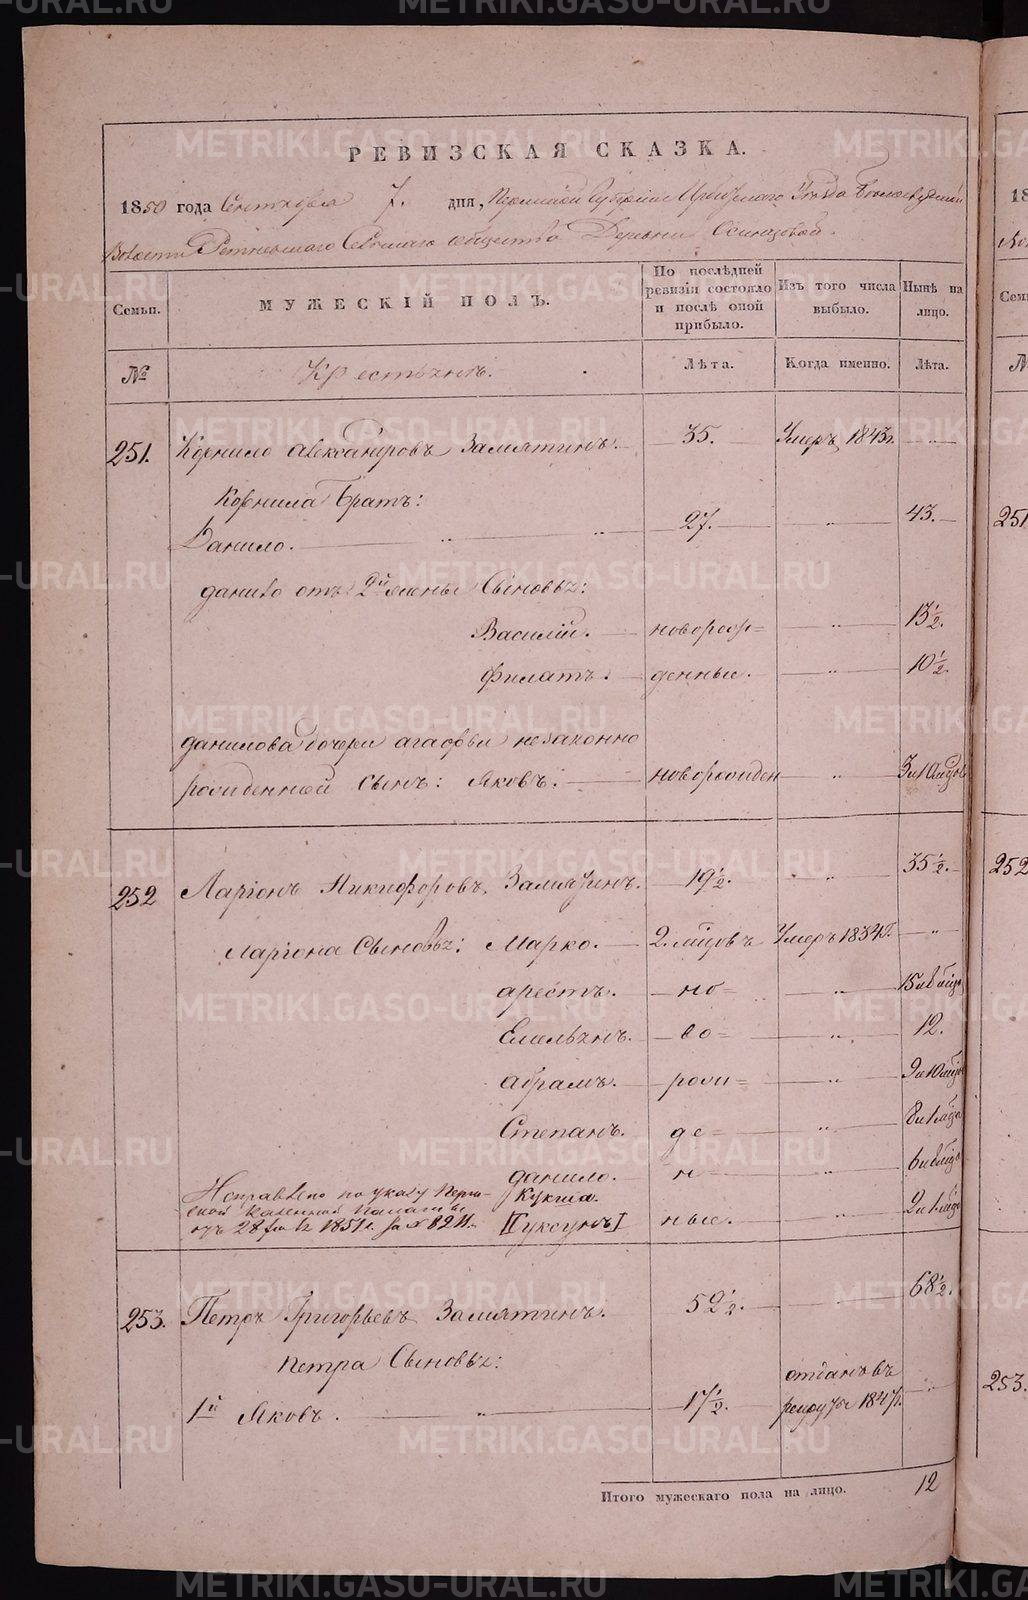 РЕВИЗСКАЯ СКАЗКА.
1850 года Сентября 7. дня, Пермской Губернии Ирбитскаго Уезда
Волости Сельскаго общества Деревни Осинцовой.
Семьи. МУЖЕСКІЙ ПОЛЪ. По послѣдней ревизіи состояло и послѣ оной прибыло. Изъ того числа выбыло. Нынѣ на лицо.
№ Крестьянъ. Лѣта. Когда именно. Лѣта.
251. Корнило Александровъ Замятинъ. 35. Умеръ 1843г. „
Корнила Братъ:
Данило. „ „ 27. „ 43.
Данило отъ 2й жены Сыновья:
Василій. новорож= „ 13½.
Филатъ. денные. „ 10½.
Данилова дочери Агафьи незаконно
рожденной Сынъ: Яковъ. новорожден „
252 Ларіонъ Никифоровъ Замятинъ. 19½. „ 35½.
Ларіона Сыновья: Марко. 2. мѣсяцовъ Умеръ 1834г. „
Арестъ. но= „
Емельянъ. во= „ 12.
Абрамъ. рож= „
Степанъ. де= „
Данило. н= „
Исправлено по указу Перм- Кукша.
ской Казенной Палаты
1851 г. за № 8211. [Гуксунъ] ные. „
253. Петръ Григорьевъ Замятинъ. 52½. „ 68½.
Петра Сыновья:
1й Яковъ. „ 17½. отданъ въ рекруты 1847г. „
Итого мужескаго пола на лицо. 12
METRIKI.GASO-URAL.RU